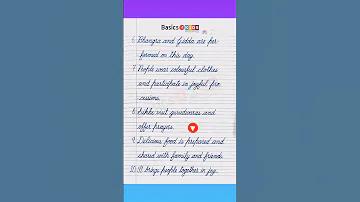 Basics
6. Bhangra and Gidda are per-
formed on this day.
7. People wear colourful clothes
and participate in joyful pro-
cessions.
8. Sikhs visit gurudwaras and
offer prayers.
9. Delicious food is prepared and
shared with family and friends.
10. It brings people together in joy.